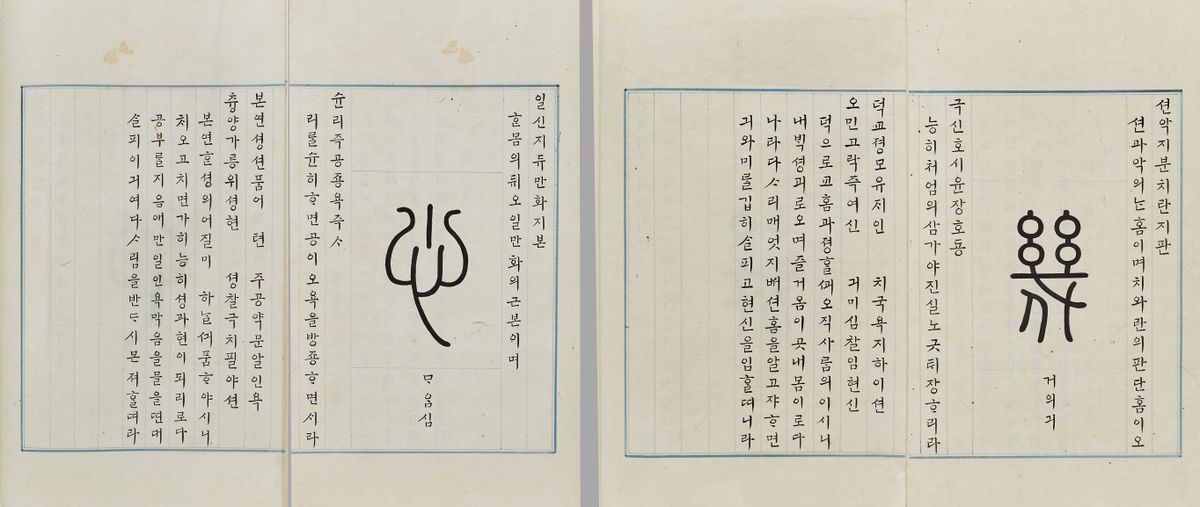 션악지분치란지판
션과악의논홈이며치와란의판단홈이오
幾
거의긔
극신호시윤장호동
능히처엄의삼가야진실노긋테장ᄒᆞ리라
덕교졍모유저인 치국욕지하이션
오민고락즉여신 긔미심찰임현신
덕으로교홈과졍홀ᄭᅬ오직사룸의이시니
내ᄇᆡᆨ셩괴로오며즐거옴이곳내몸이로다
나라다ᄉᆞ리매엇지ᄒᆡ션홈을알고쟈ᄒᆞ면
긔와미를깁히ᄉᆞᆯ피고현신을임홀ᄯᅧ니라
일신지듀만화지본
ᄒᆞᆫ몸의쥐오일만화의근본이며
心
ᄆᆞ음심
슌리즉공죵욕즉ᄉᆞ
리를슌히ᄒᆞ면공이오욕을방죵ᄒᆞ면서라
본연셩션품어텬 주공약문알인욕
츙양가릉위셩현 셩찰극치필야션
본연ᄒᆞᆫ셩의어질미 하ᄂᆞᆯᄭᅴ품ᄒᆞ야시니
치오고치면가히능히셩과현이되리로다
공부를지음애만일인욕막음을물을띤대
ᄉᆞᆯ피이긔여다ᄉᆞ림을반ᄃᆞ시몬져홀ᄯᅧ라